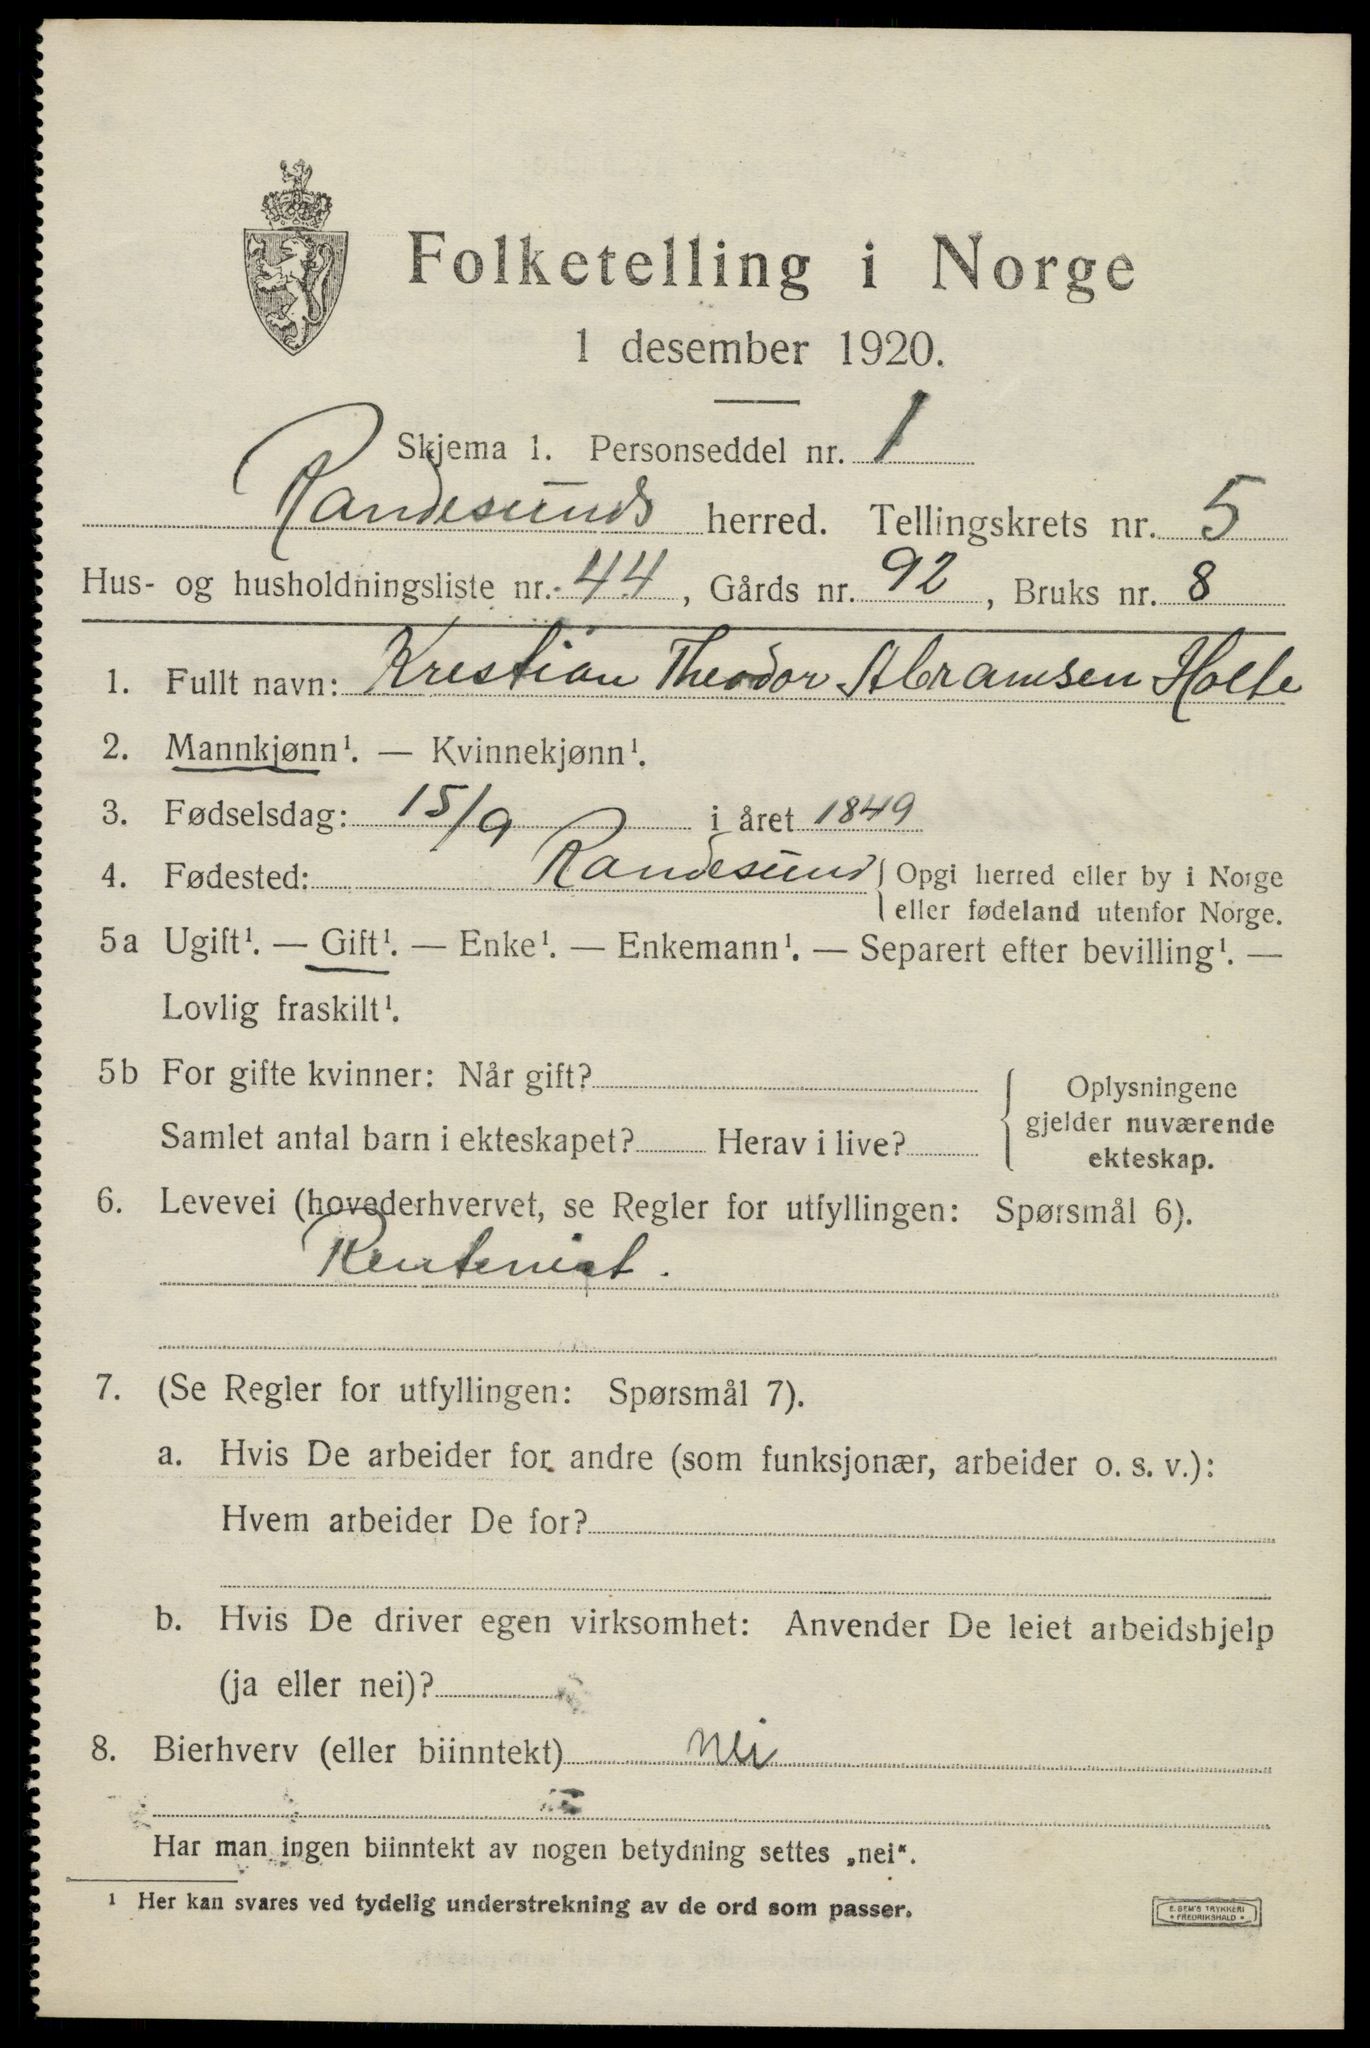 Folketelling i Norge
1 desember 1920.
Skjema 1. Personseddel nr. 1
Randesunds herred. Tellingskrets nr. 5
Hus- og husholdningsliste nr. 44, Gårds nr. 92, Bruks nr. 8
1. Fullt navn: Kristian Theodor Abramsen Holte
2. Mannkjønn¹. — Kvinnekjønn¹.
3. Fødselsdag: 15/9 i året 1849
4. Fødested: Randesund { Opgi herred eller by i Norge
eller fødeland utenfor Norge.
5a Ugift¹. — Gift¹. — Enke¹. — Enkemann¹. — Separert efter bevilling¹. —
Lovlig fraskilt¹.
5b For gifte kvinner: Når gift?
Samlet antal barn i ekteskapet? Herav i live?
{ Oplysningene
gjelder nuværende
ekteskap.
6. Levevei (hovederhvervet, se Regler for utfyllingen: Spørsmål 6).
Rentenist.
7. (Se Regler for utfyllingen: Spørsmål 7).
a. Hvis De arbeider for andre (som funksjonær, arbeider o. s. v.):
Hvem arbeider De for?
b. Hvis De driver egen virksomhet: Anvender De leiet arbeidshjelp
(ja eller nei)?
8. Bierhverv (eller biinntekt) nei
Har man ingen biinntekt av nogen betydning settes „nei“.
¹ Her kan svares ved tydelig understrekning av de ord som passer.
E. SEM'S TRYKKERI
• FREDRIKSHALD •